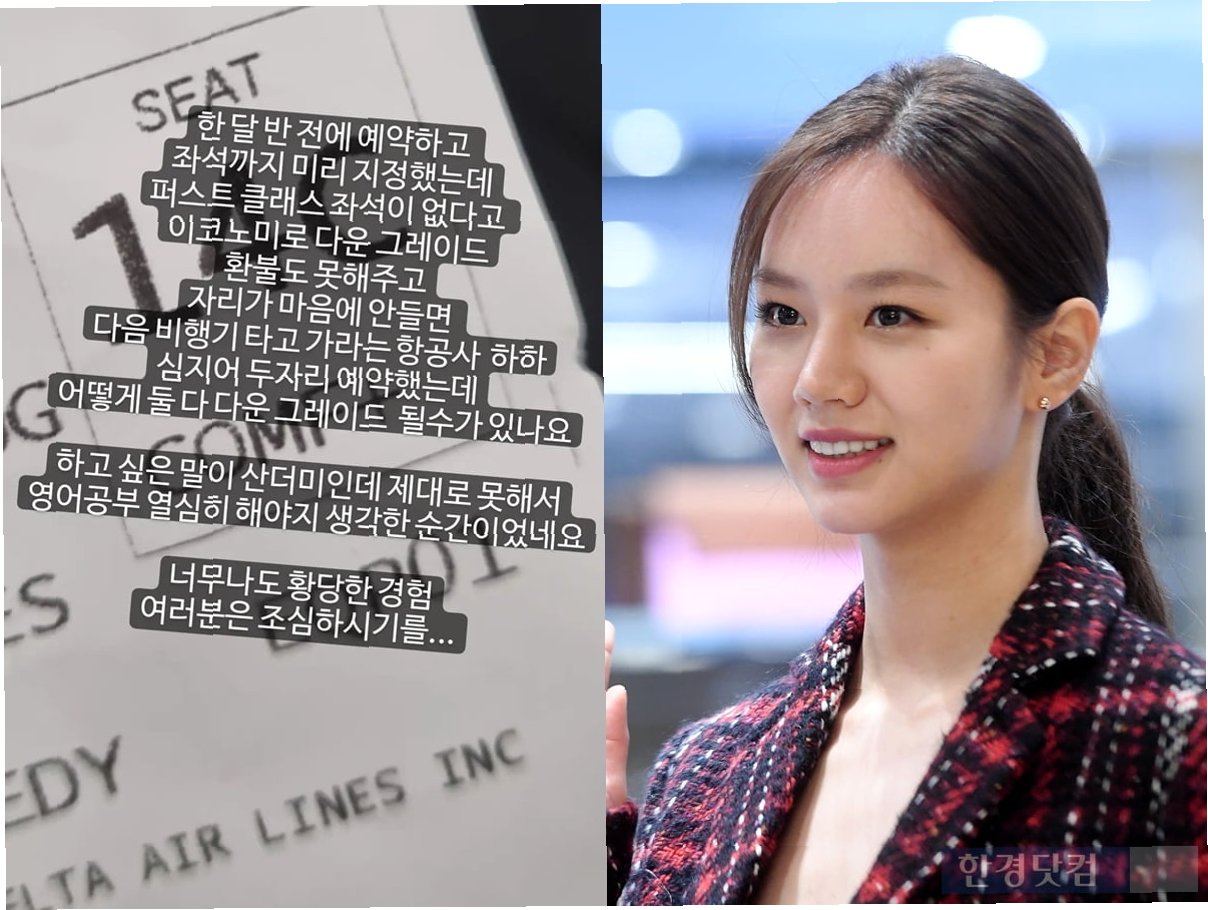 SEAT
한 달 반 전에 예약하고
좌석까지 미리 지정했는데
퍼스트 클래스 좌석이 없다고
이코노미로 다운 그레이드
환불도 못해주고
자리가 마음에 안들면
다음 비행기 타고 가라는 항공사 하하
심지어 두자리 예약했는데
어떻게 둘 다 다운 그레이드 될수가 있나요
하고 싶은 말이 산더미인데 제대로 못해서
영어공부 열심히 해야지 생각한 순간이었네요
너무나도 황당한 경험
여러분은 조심하시기를...
ES
EDY
ELTA AIR LINES INC
한경닷컴